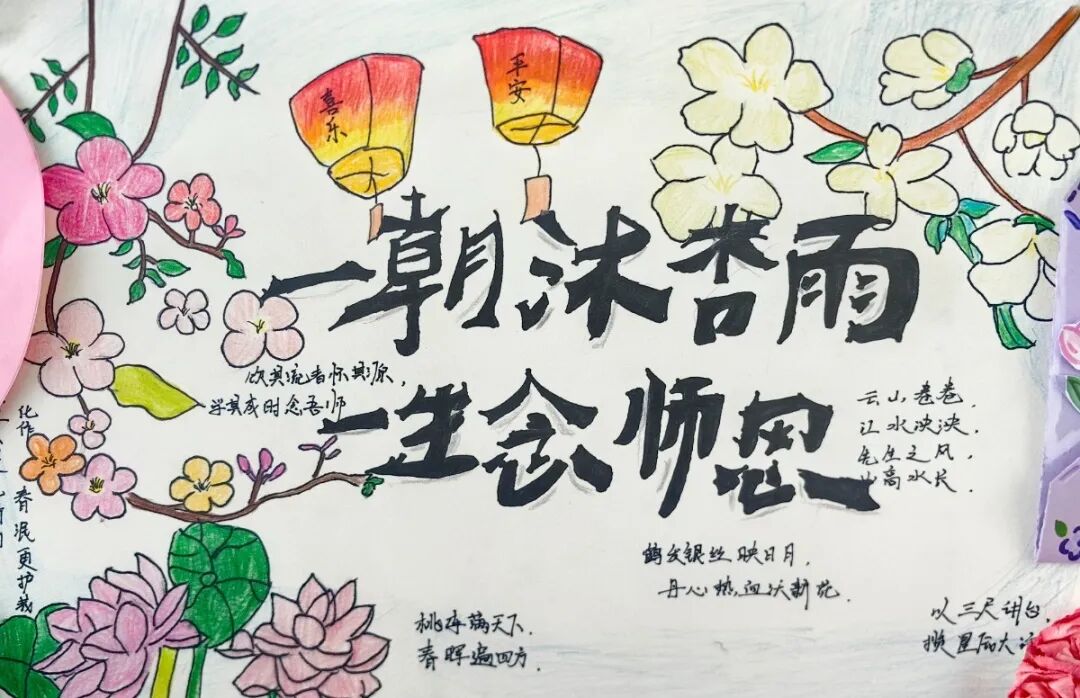 喜乐
平安
一朝沐杏雨
一生念师恩
饮其流者怀其源,
学其成时念吾师
云山苍苍,
江水泱泱,
先生之风,
山高水长.
鹤发银丝映日月,
丹心热血沃新花.
桃李满天下,
春晖遍四方.
以三尺讲台,
化作春泥更护